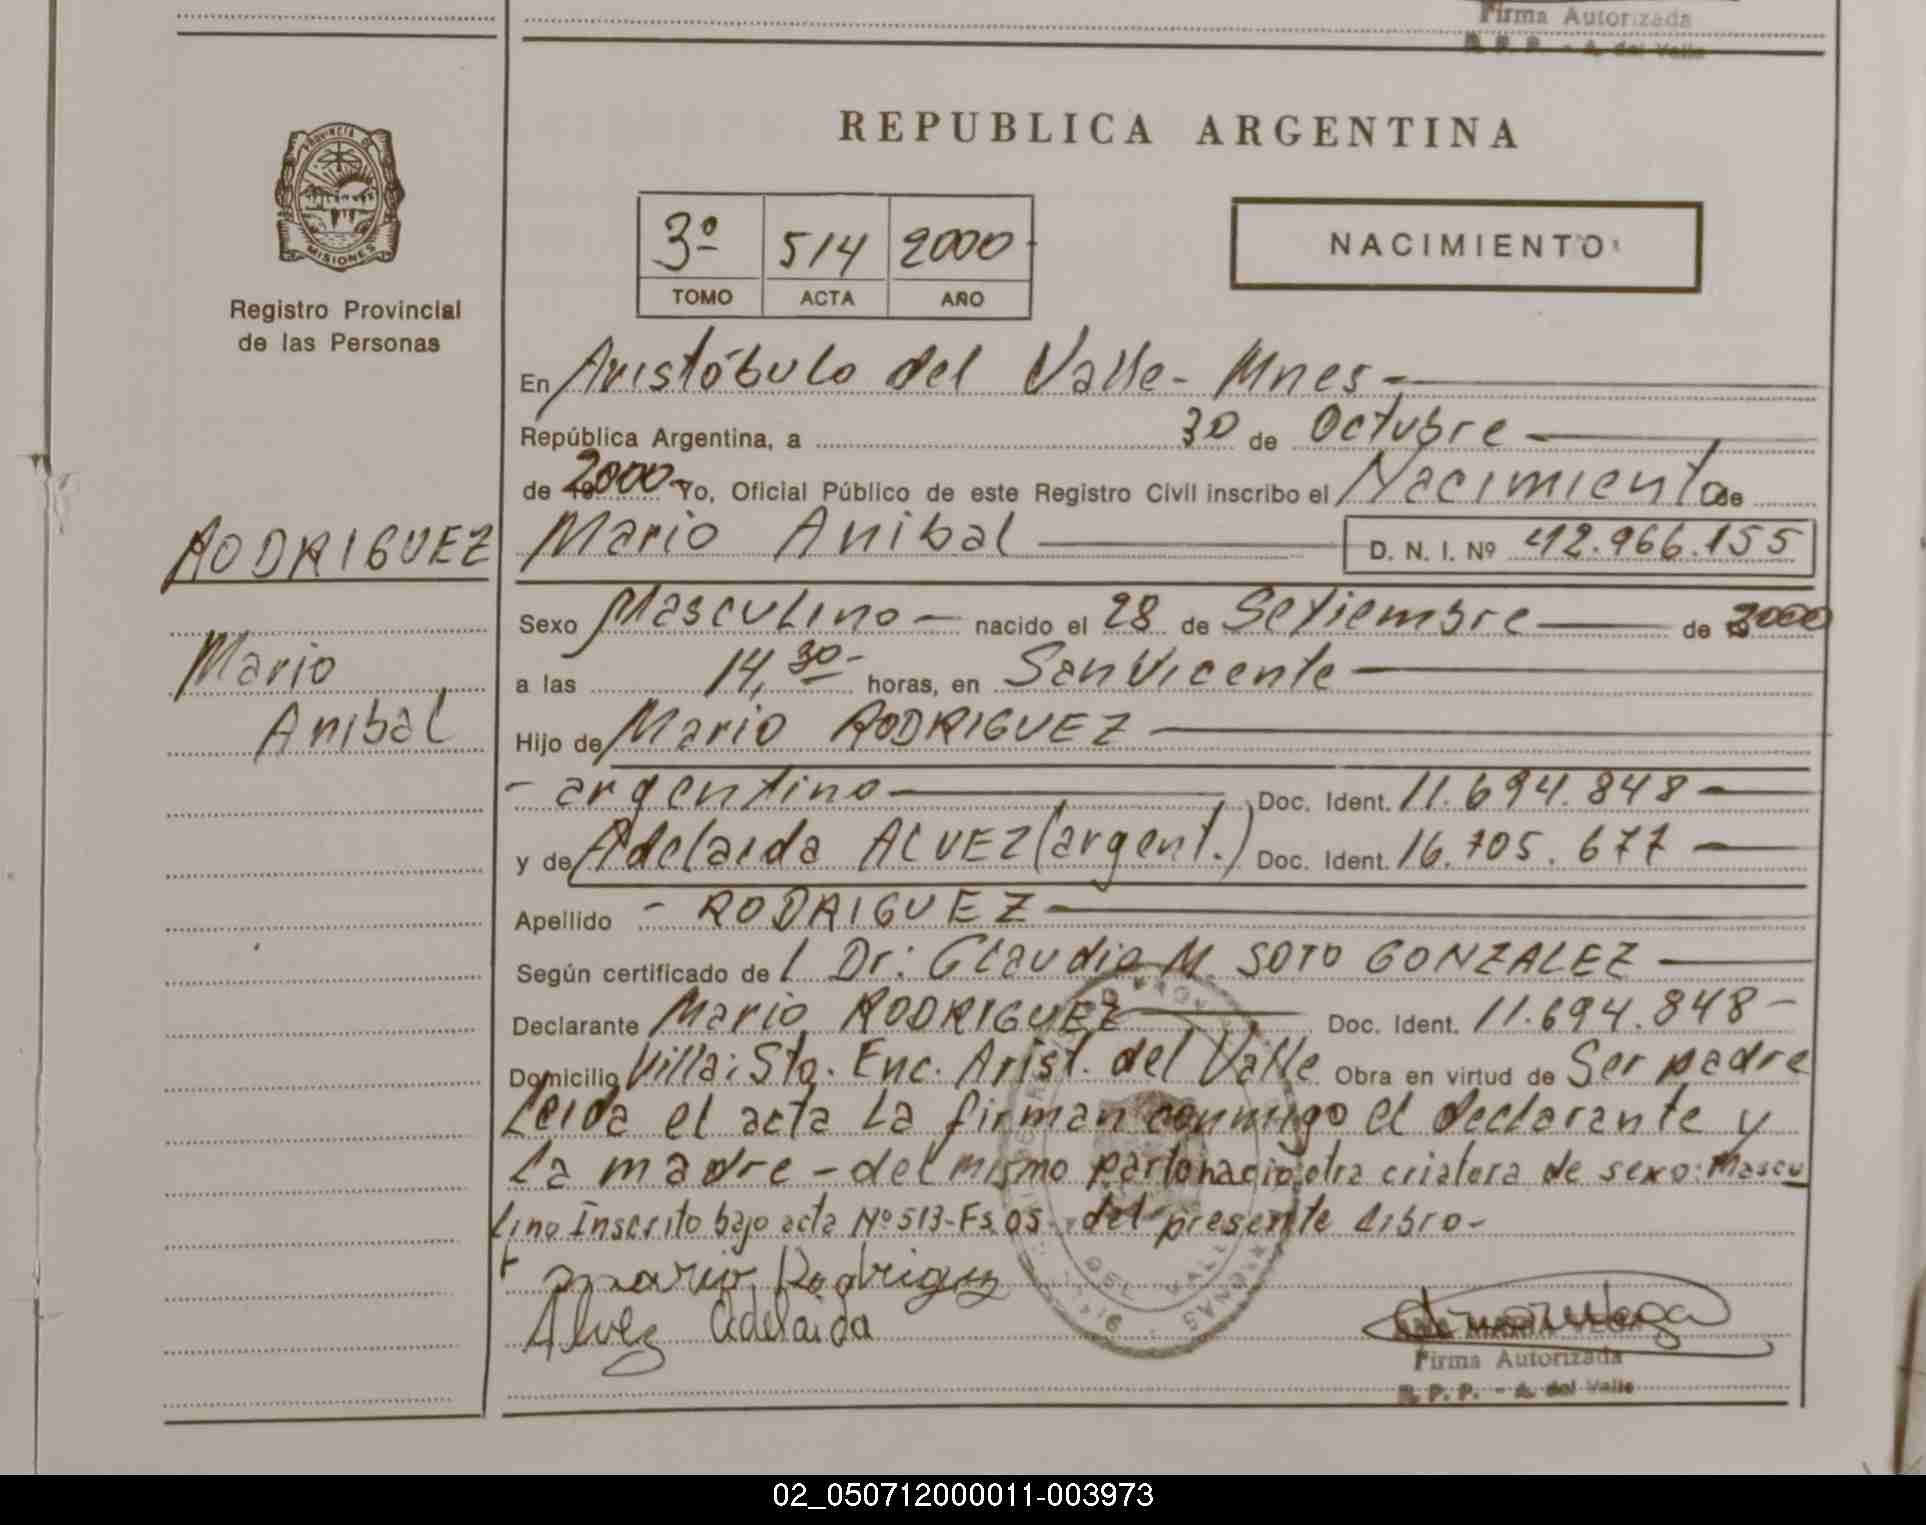 Firma Autorizada
R. P. P. - A. del Valle
REPUBLICA ARGENTINA
PROVINCIA DE
MISIONES
Registro Provincial
de las Personas
3º 514 2000
TOMO ACTA AÑO
NACIMIENTO
En Aristóbulo del Valle- Mnes-
República Argentina, a 30 de Octubre
de 2000- Yo, Oficial Público de este Registro Civil inscribo el Nacimiento de
RODRIGUEZ
Mario Anibal D. N. I. Nº 42.966.155
Sexo Masculino nacido el 28 de Setiembre de 2000
Mario
Anibal
a las 14,30- horas, en San Vicente
Hijo de Mario RODRIGUEZ
- argentino Doc. Ident. 11.694.848
y de Adelaida ALVEZ (argent.) Doc. Ident. 16.705.677
Apellido - RODRIGUEZ
Según certificado de l Dr: Claudio M. SOTO GONZALEZ
Declarante Mario RODRIGUEZ Doc. Ident. 11.694.848-
Domicilio Villa: Sto. Enc. Arist. del Valle Obra en virtud de Ser padre
Leida el acta la firman conmigo el declarante y
la madre - del mismo parto nacio otra criatura de sexo: Mascu
lino Inscrito bajo acta Nº 513-Fs. 05- del presente Libro-
Mario Rodriguez
Alvez Adelaida
DEL VALLE
Firma Autorizada
R. P. P. - A. del Valle
02_050712000011-003973